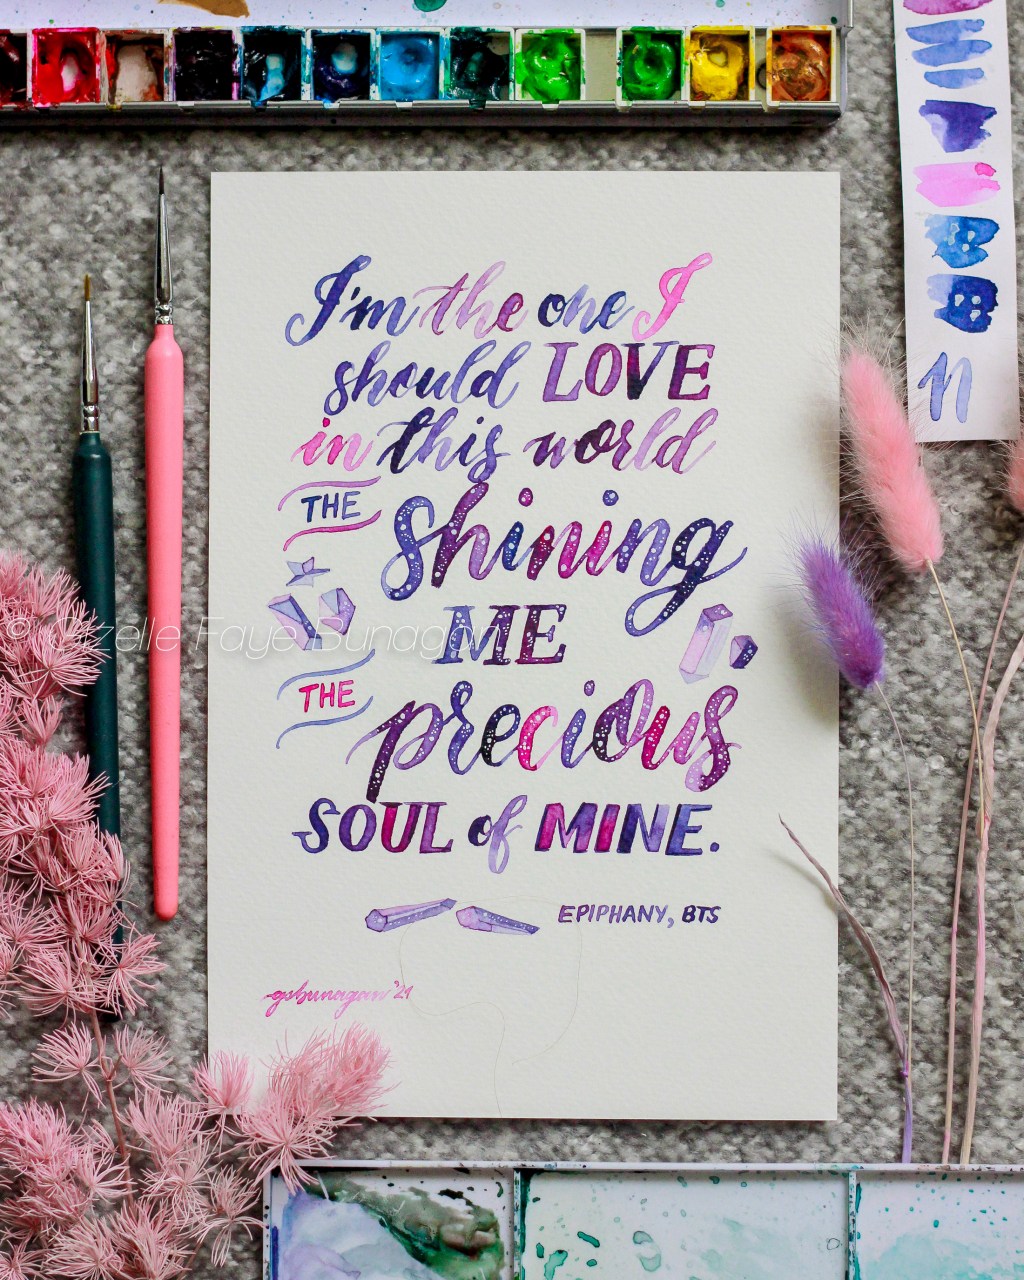 I'm the one I
should LOVE
in this world
THE shining
ME
THE precious
SOUL of MINE.
EPIPHANY, BTS
gsbunagan '21
© Gizelle Faye Bunagan